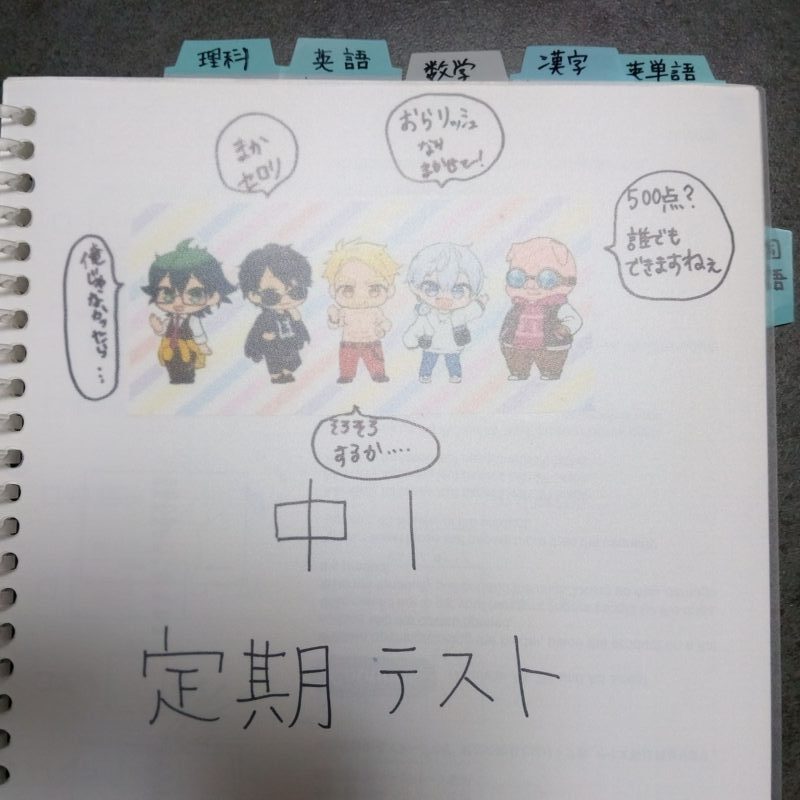 理科
英語
数学
漢字
英単語
国
語
まか
セロリ
おらリッシュ
なみ
まかせて!
500点?
誰でも
できますねぇ
俺じゃなかったら…
そろそろ
するか....
中1
定期テスト